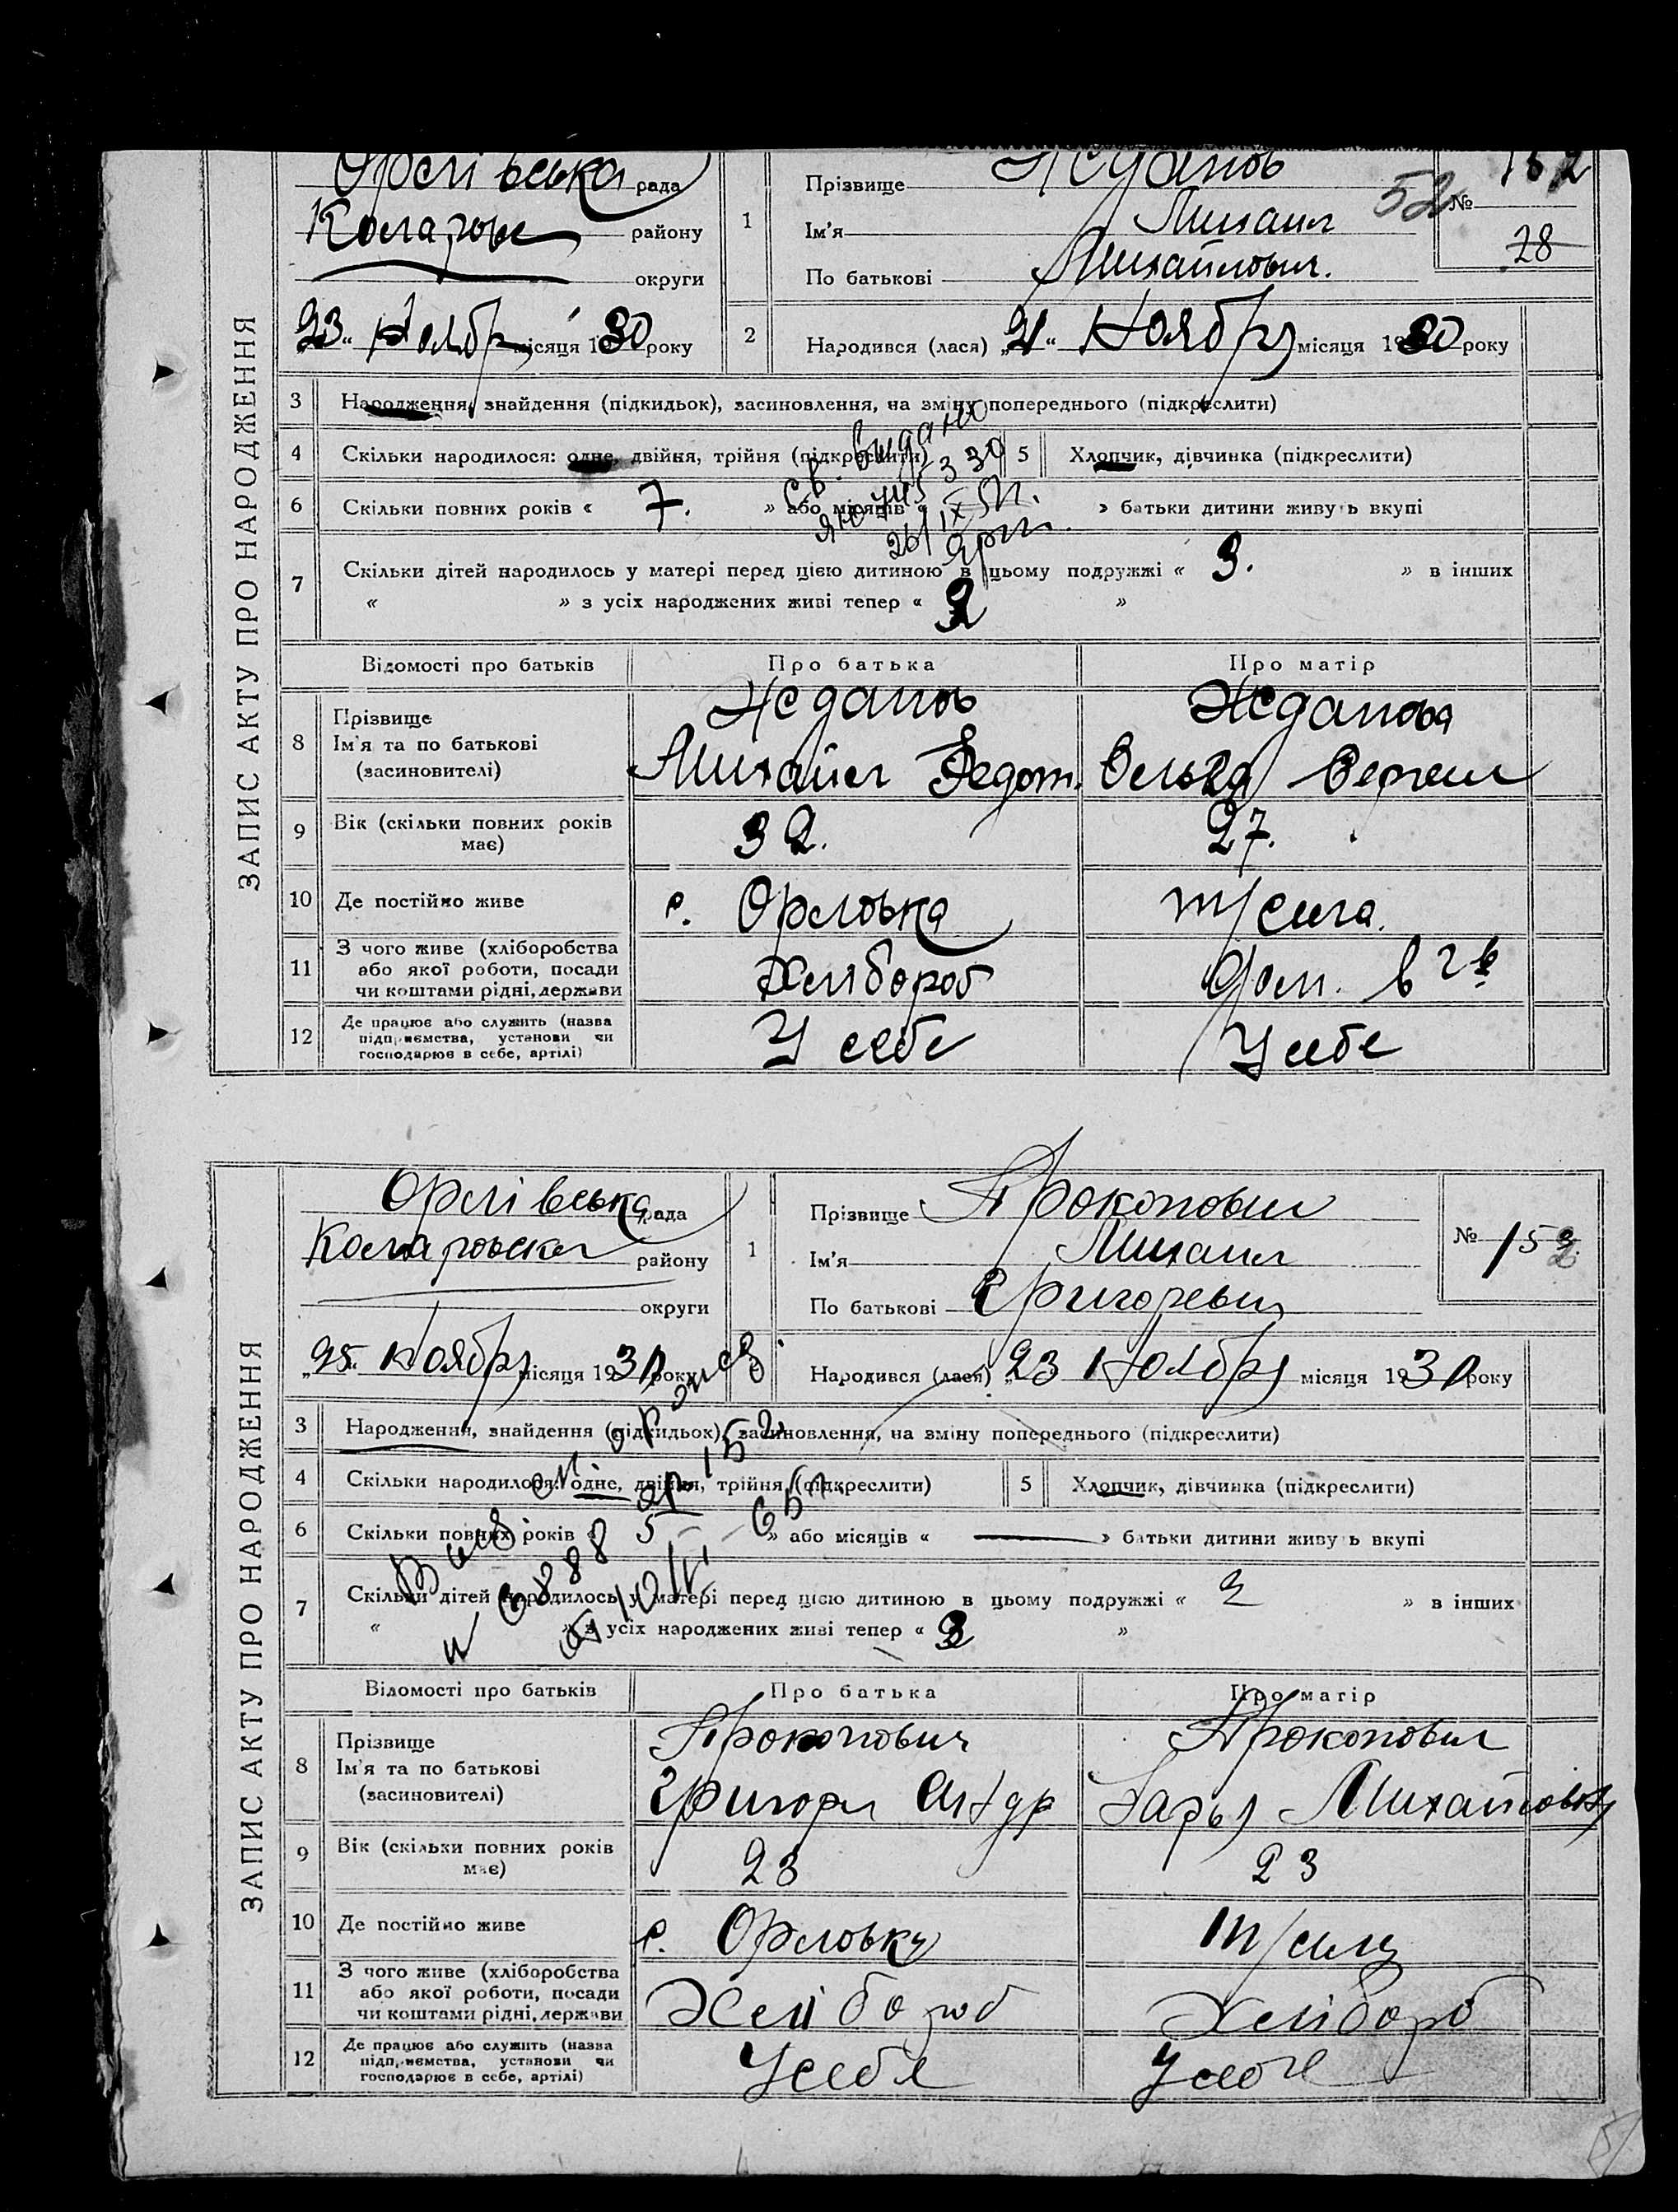 ЗАПИС АКТУ ПРО НАРОДЖЕННЯ
Орлівська рада
району
округи
1
Прізвище Жданов
Ім'я Михаил
По батькові Михайлович.
52
№ 152
28
„23“ Ноября місяця 1930 року
2
Народився (лася) „21“ Ноября місяця 1930 року
3 Народження, знайдення (підкидьок), засиновлення, на зміну попереднього (підкреслити)
4 Скільки народилося: одне, двійня, трійня (підкреслити)
5 Хлопчик, дівчинка (підкреслити)
6 Скільки повних років « 7. » або місяців « » батьки дитини живуть вкупі
7 Скільки дітей народилось у матері перед цією дитиною в цьому подружжі « 3. » в інших
« » з усіх народжених живі тепер « 2 »
Відомості про батьків
Про батька
Про матір
8 Прізвище
Ім'я та по батькові
(засиновителі)
Жданов
Михайил Федот.
Жданова
Ольга
9 Вік (скільки повних років має)
32.
27.
10 Де постійно живе
с. Орловка
т/села.
11 З чого живе (хліборобства або якої роботи, посади чи коштами рідні, держави
Хлібороб
12 Де працює або служить (назва підприємства, установи чи господарює в себе, артілі)
У себе
У себе
ЗАПИС АКТУ ПРО НАРОДЖЕННЯ
Орлівська рада
району
округи
1
Прізвище Прокопович
Ім'я Михаил
По батькові Григоревич
№ 153
„25. Ноября місяця 1930 року
Народився (лася) „23 Ноября місяця 1930 року
3 Народження, знайдення (підкидьок), засиновлення, на зміну попереднього (підкреслити)
4 Скільки народилося: одне, двійня, трійня (підкреслити)
5 Хлопчик, дівчинка (підкреслити)
6 Скільки повних років « 5 » або місяців « — » батьки дитини живуть вкупі
7 Скільки дітей народилось у матері перед цією дитиною в цьому подружжі « » в інших
« » з усіх народжених живі тепер « »
Відомості про батьків
Про батька
Про матір
8 Прізвище
Ім'я та по батькові
(засиновителі)
Прокопович
Григори
Прокопович
Дарья Михайловна
9 Вік (скільки повних років має)
23
23
10 Де постійно живе
с. Орловка
т/села
11 З чого живе (хліборобства або якої роботи, посади чи коштами рідні, держави
Хлібороб
Хлібороб
12 Де працює або служить (назва підприємства, установи чи господарює в себе, артілі)
У себе
У себе